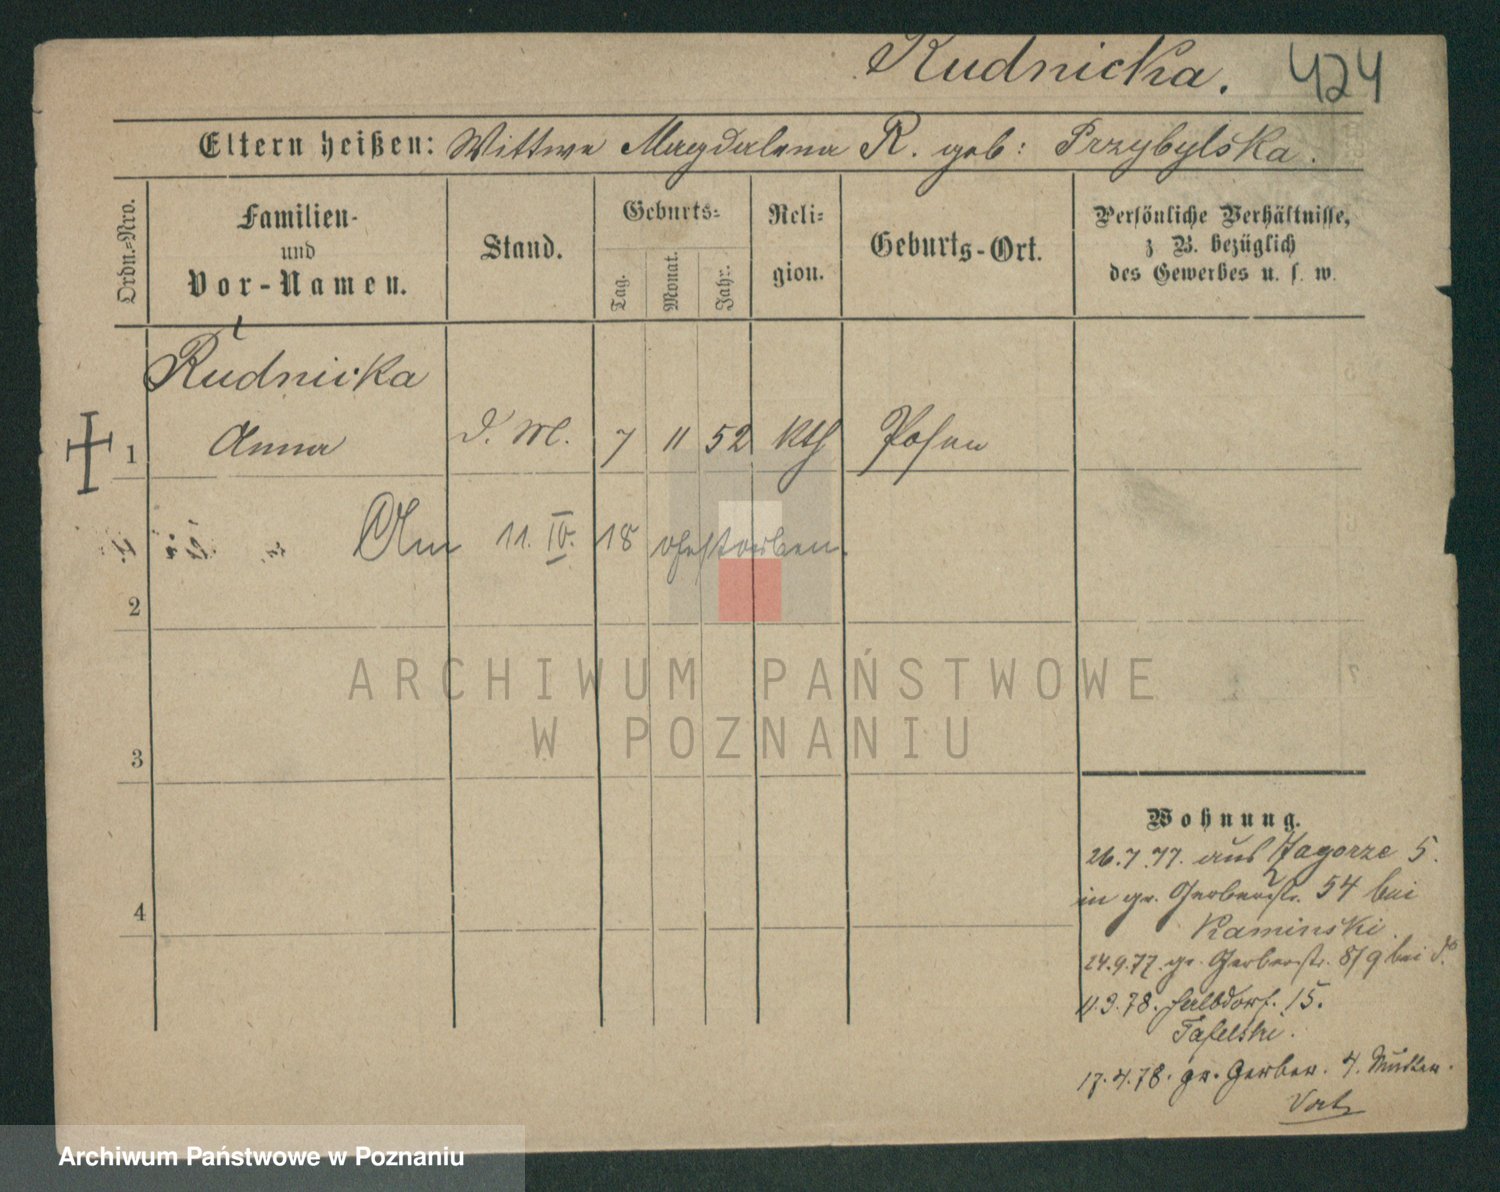 Rudnicka. 424
Eltern heißen: Wittwe Magdalena R. geb: Przybylska.
Ordn.-Nro.
Familien-
und
Vor-Namen.
Stand.
Geburts-
Tag.
Monat.
Jahr.
Reli-
gion.
Geburts-Ort.
Persönliche Verhältnisse,
z B. bezüglich
des Gewerbes u. s. w.
Rudnicka
1 Anna d. M. 7 11 52 Kth Posen
Am 11. IV. 18 verstorben.
2
3
4
ARCHIWUM PAŃSTWOWE
W POZNANIU
Wohnung.
26.7.77. aus Zagorze 5.
in gr. Gerberstr. 54 bei
Kaminski.
24.9.77. gr. Gerberstr. 8/9 bei do
11.3.78. Halbdorf. 15.
Tafelski.
17.4.78. gr. Gerber. 4. Mutter.
Archiwum Państwowe w Poznaniu